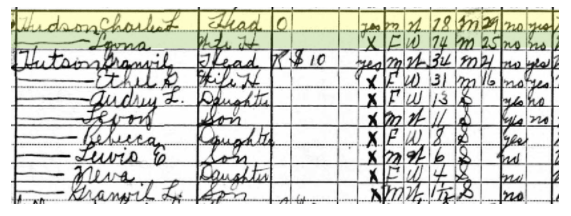 Hudson Charlie L Head O yes M W 78 M 29 no yes
—— Lovna Wife H X F W 74 M 25 no no
Hutson Granvil Head R $10 yes M W 34 M 21 no yes
—— Ethel G Wife H X F W 31 M 16 no yes
—— Audrey L. Daughter X F W 13 S yes no
—— Levon Son X M W 11 S yes no
—— Rebecca Daughter X F W 8 S yes
—— Lewis E Son X M W 6 S no
—— Neva Daughter X F W 4 S no
—— Granvil L. Son X M W S no